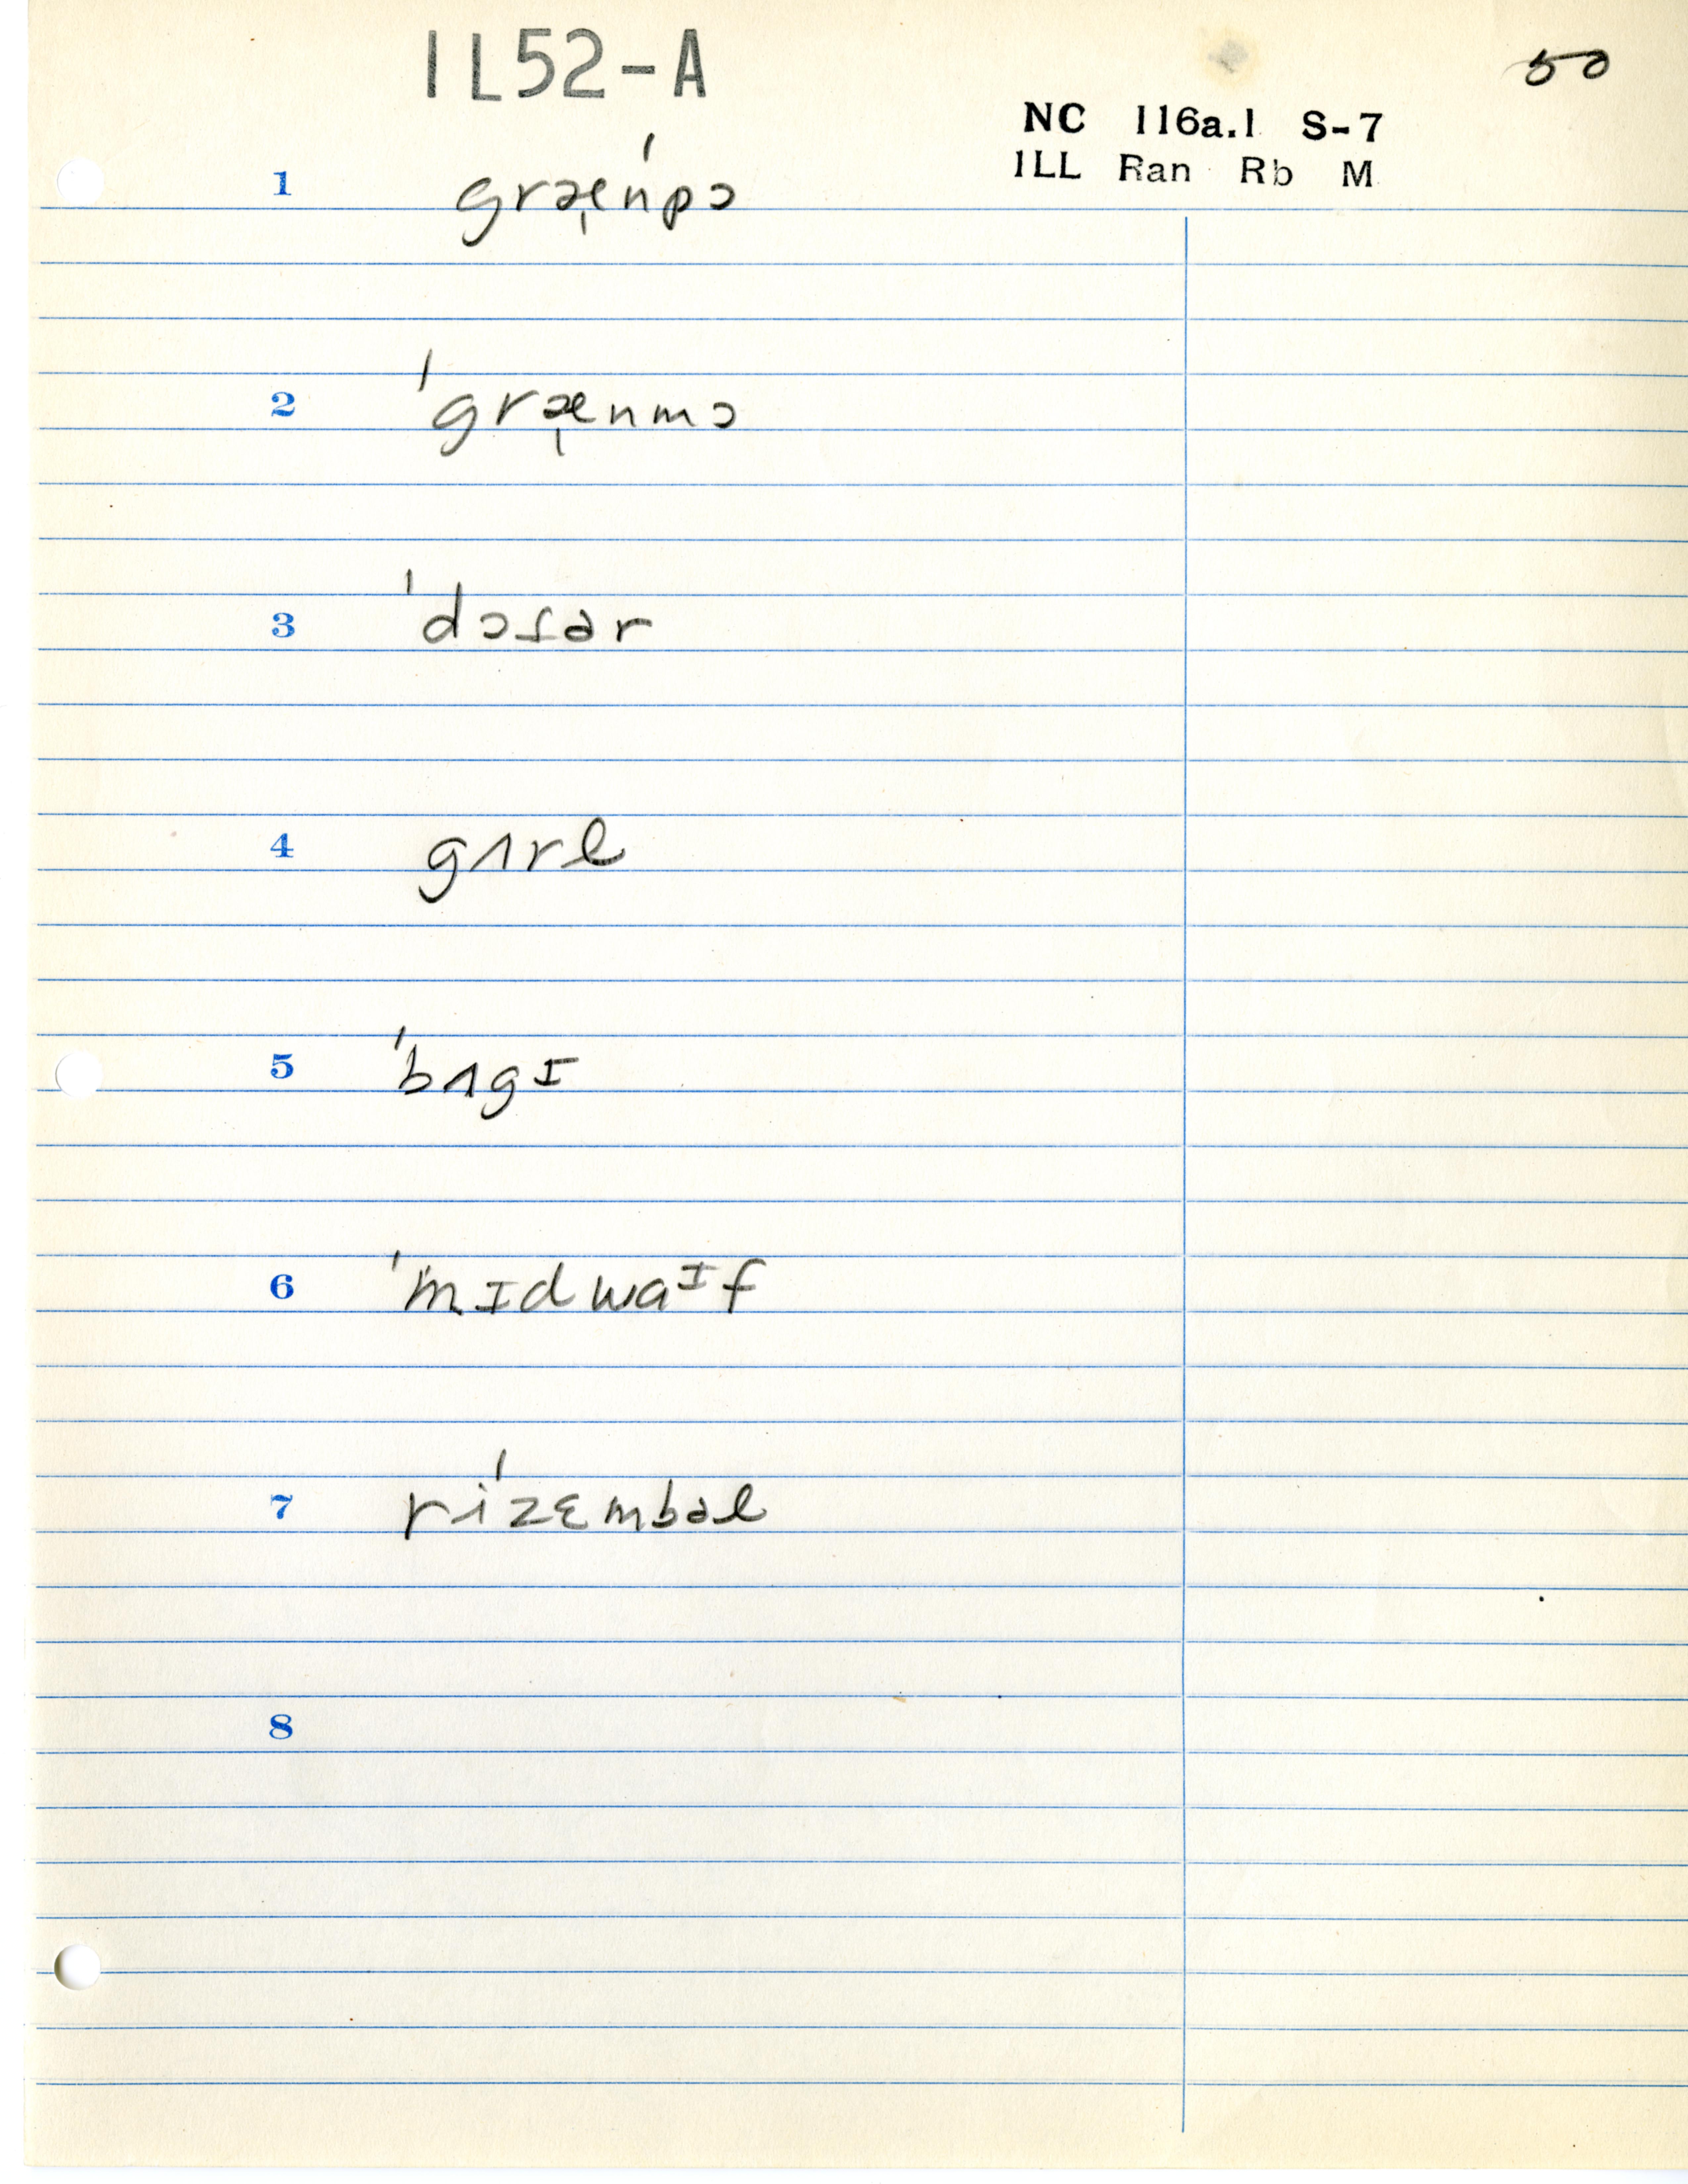 1L52-A
50
NC 116a.1 S-7
ILL Ran Rb M
1 græ̩nˈpɔ
2 ˈgræ̩nmɔ
3 ˈdɔɾər
4 gʌrl
5 ˈbʌgɪ
6 ˈmɪdwaᶦf
7 riˈzɛmbəl
8